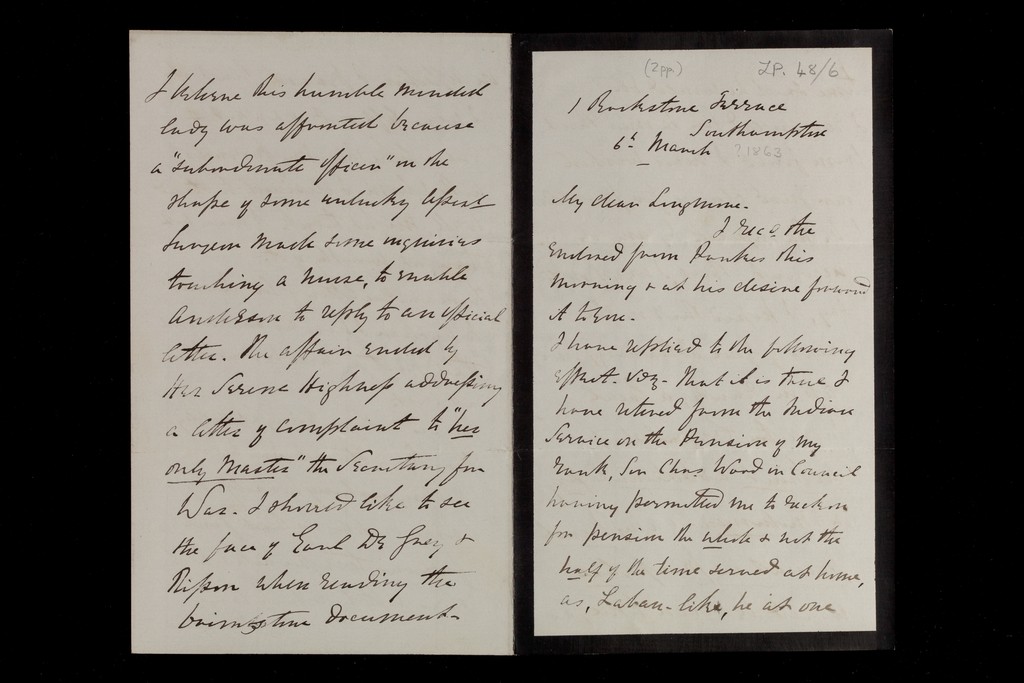 (2pp)
LP. 48/6
1 Rockstone Terrace
Southampton
6th March ?1863
My dear Longmore.
I recd. the
enclosed from Parkes this
morning & at his desire forward
it to you.
I have replied to the following
effect. viz. that it is true I
have retired from the Indian
Service on the Pension of my
rank, Sir Chas Wood in Council
having permitted me to reckon
for pension the whole & not the
half of the time served at home,
as, Laban-like, he at one
I believe this humble minded
lady was affronted because
a "subordinate officer" in the
shape of some unlucky Assist
Surgeon made some inquiries
touching a nurse, to enable
Anderson to reply to an official
letter. The affair ended by
Her Serene Highness addressing
a letter of complaint to "her
only Master" the Secretary for
War. I should like to see
the face of Earl De Grey &
Ripon when reading the
brimstone document.